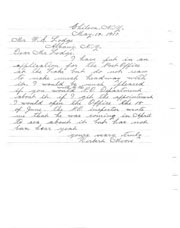 Chilson, N.Y.
May. 14, 19
Mr. F. A. Lodge
Albany N.Y.
Dear Mr. Lodge
I have put in an
application for the Post Office
at the Lake but do not seem
to make much headway with
it. Would be very pleased
if you would P.O. Department
about it if I get the appointment
I would open the Office the 1st
of June the P.O. inspector wrote
me that he was coming in April
to see about it but has not
been here yet.
yours very truly
Moore